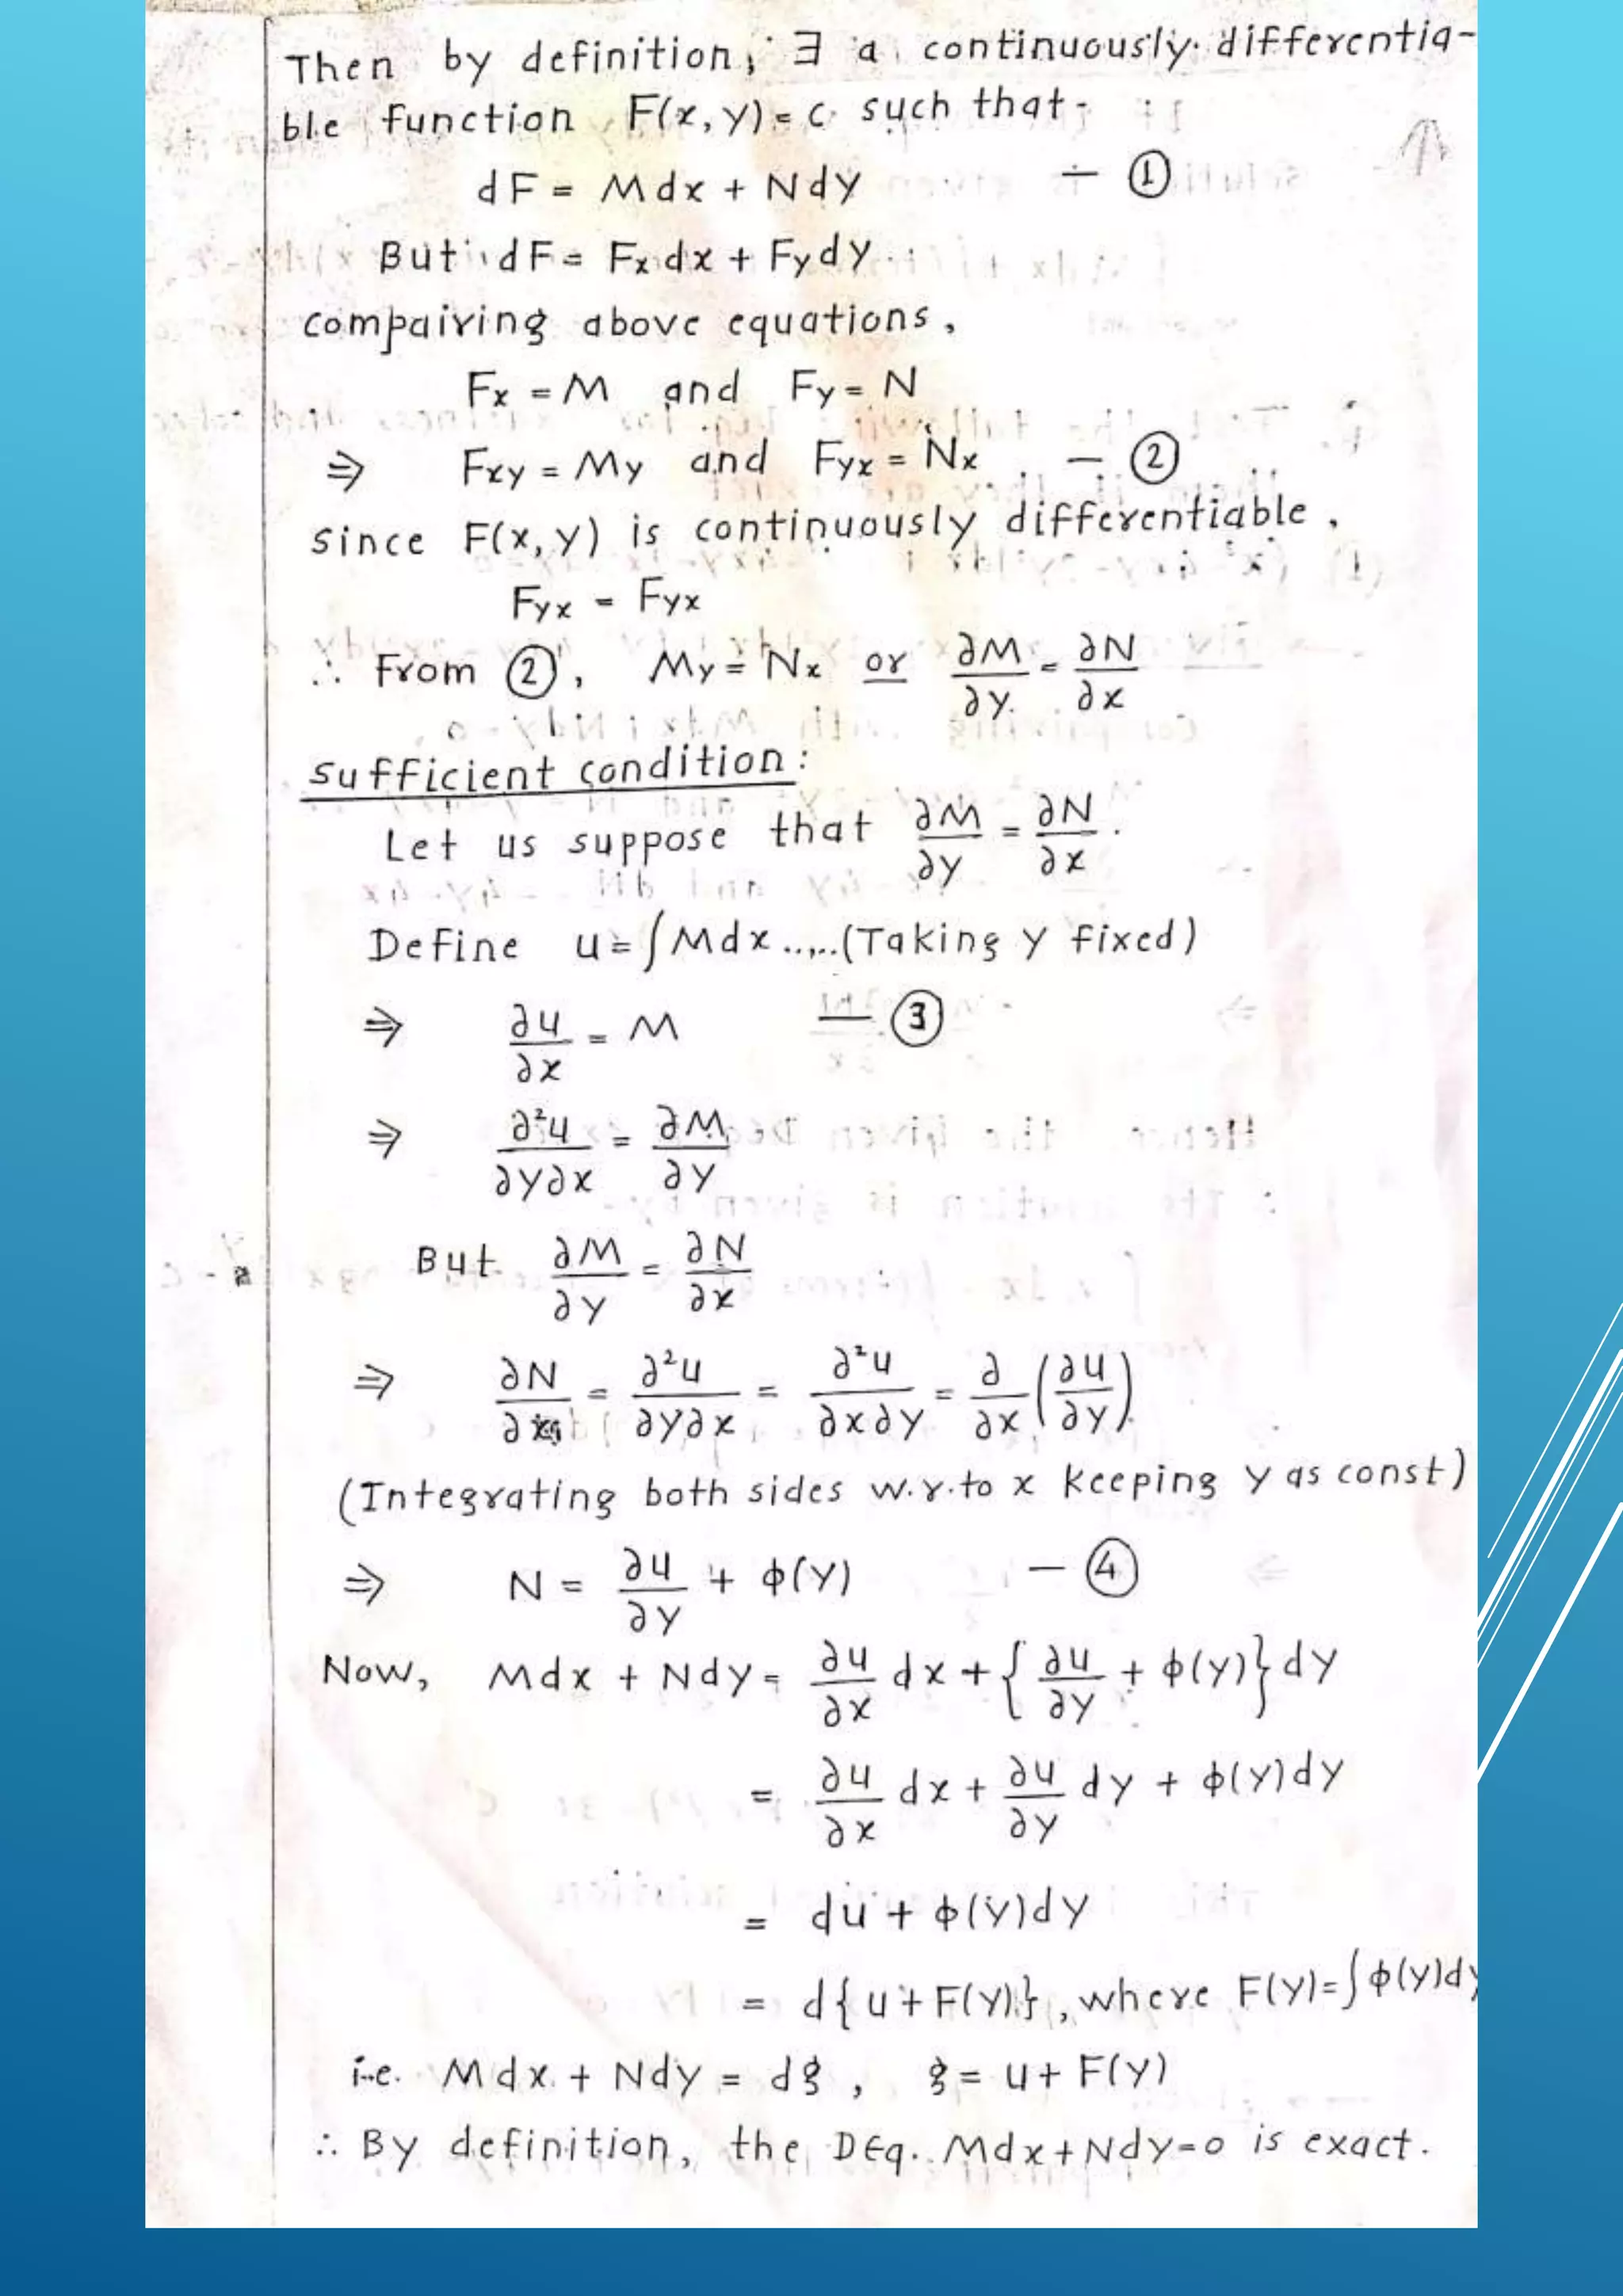 Then by definition, ∃ a continuously differentia-
ble function F(x, y) = c such that-
dF = Mdx + Ndy — ①
But dF = Fx dx + Fy dy
compairing above equations,
Fx = M and Fy = N
⇒ Fxy = My and Fyx = Nx — ②
since F(x, y) is continuously differentiable,
Fyx = Fyx
∴ From ②, My = Nx or ∂M/∂y = ∂N/∂x
sufficient condition:
Let us suppose that ∂M/∂y = ∂N/∂x.
Define u = ∫Mdx .....(Taking y fixed)
⇒ ∂u/∂x = M — ③
⇒ ∂²u/∂y∂x = ∂M/∂y
But ∂M/∂y = ∂N/∂x
⇒ ∂N/∂x = ∂²u/∂y∂x = ∂²u/∂x∂y = ∂/∂x (∂u/∂y)
(Integrating both sides w.r.to x keeping y as const)
⇒ N = ∂u/∂y + φ(y) — ④
Now, Mdx + Ndy = ∂u/∂x dx + {∂u/∂y + φ(y)} dy
= ∂u/∂x dx + ∂u/∂y dy + φ(y)dy
= du + φ(y)dy
= d{u + F(y)}, where F(y) = ∫φ(y)dy
i.e. Mdx + Ndy = dg, g = u + F(y)
∴ By definition, the DEq. Mdx + Ndy = 0 is exact.